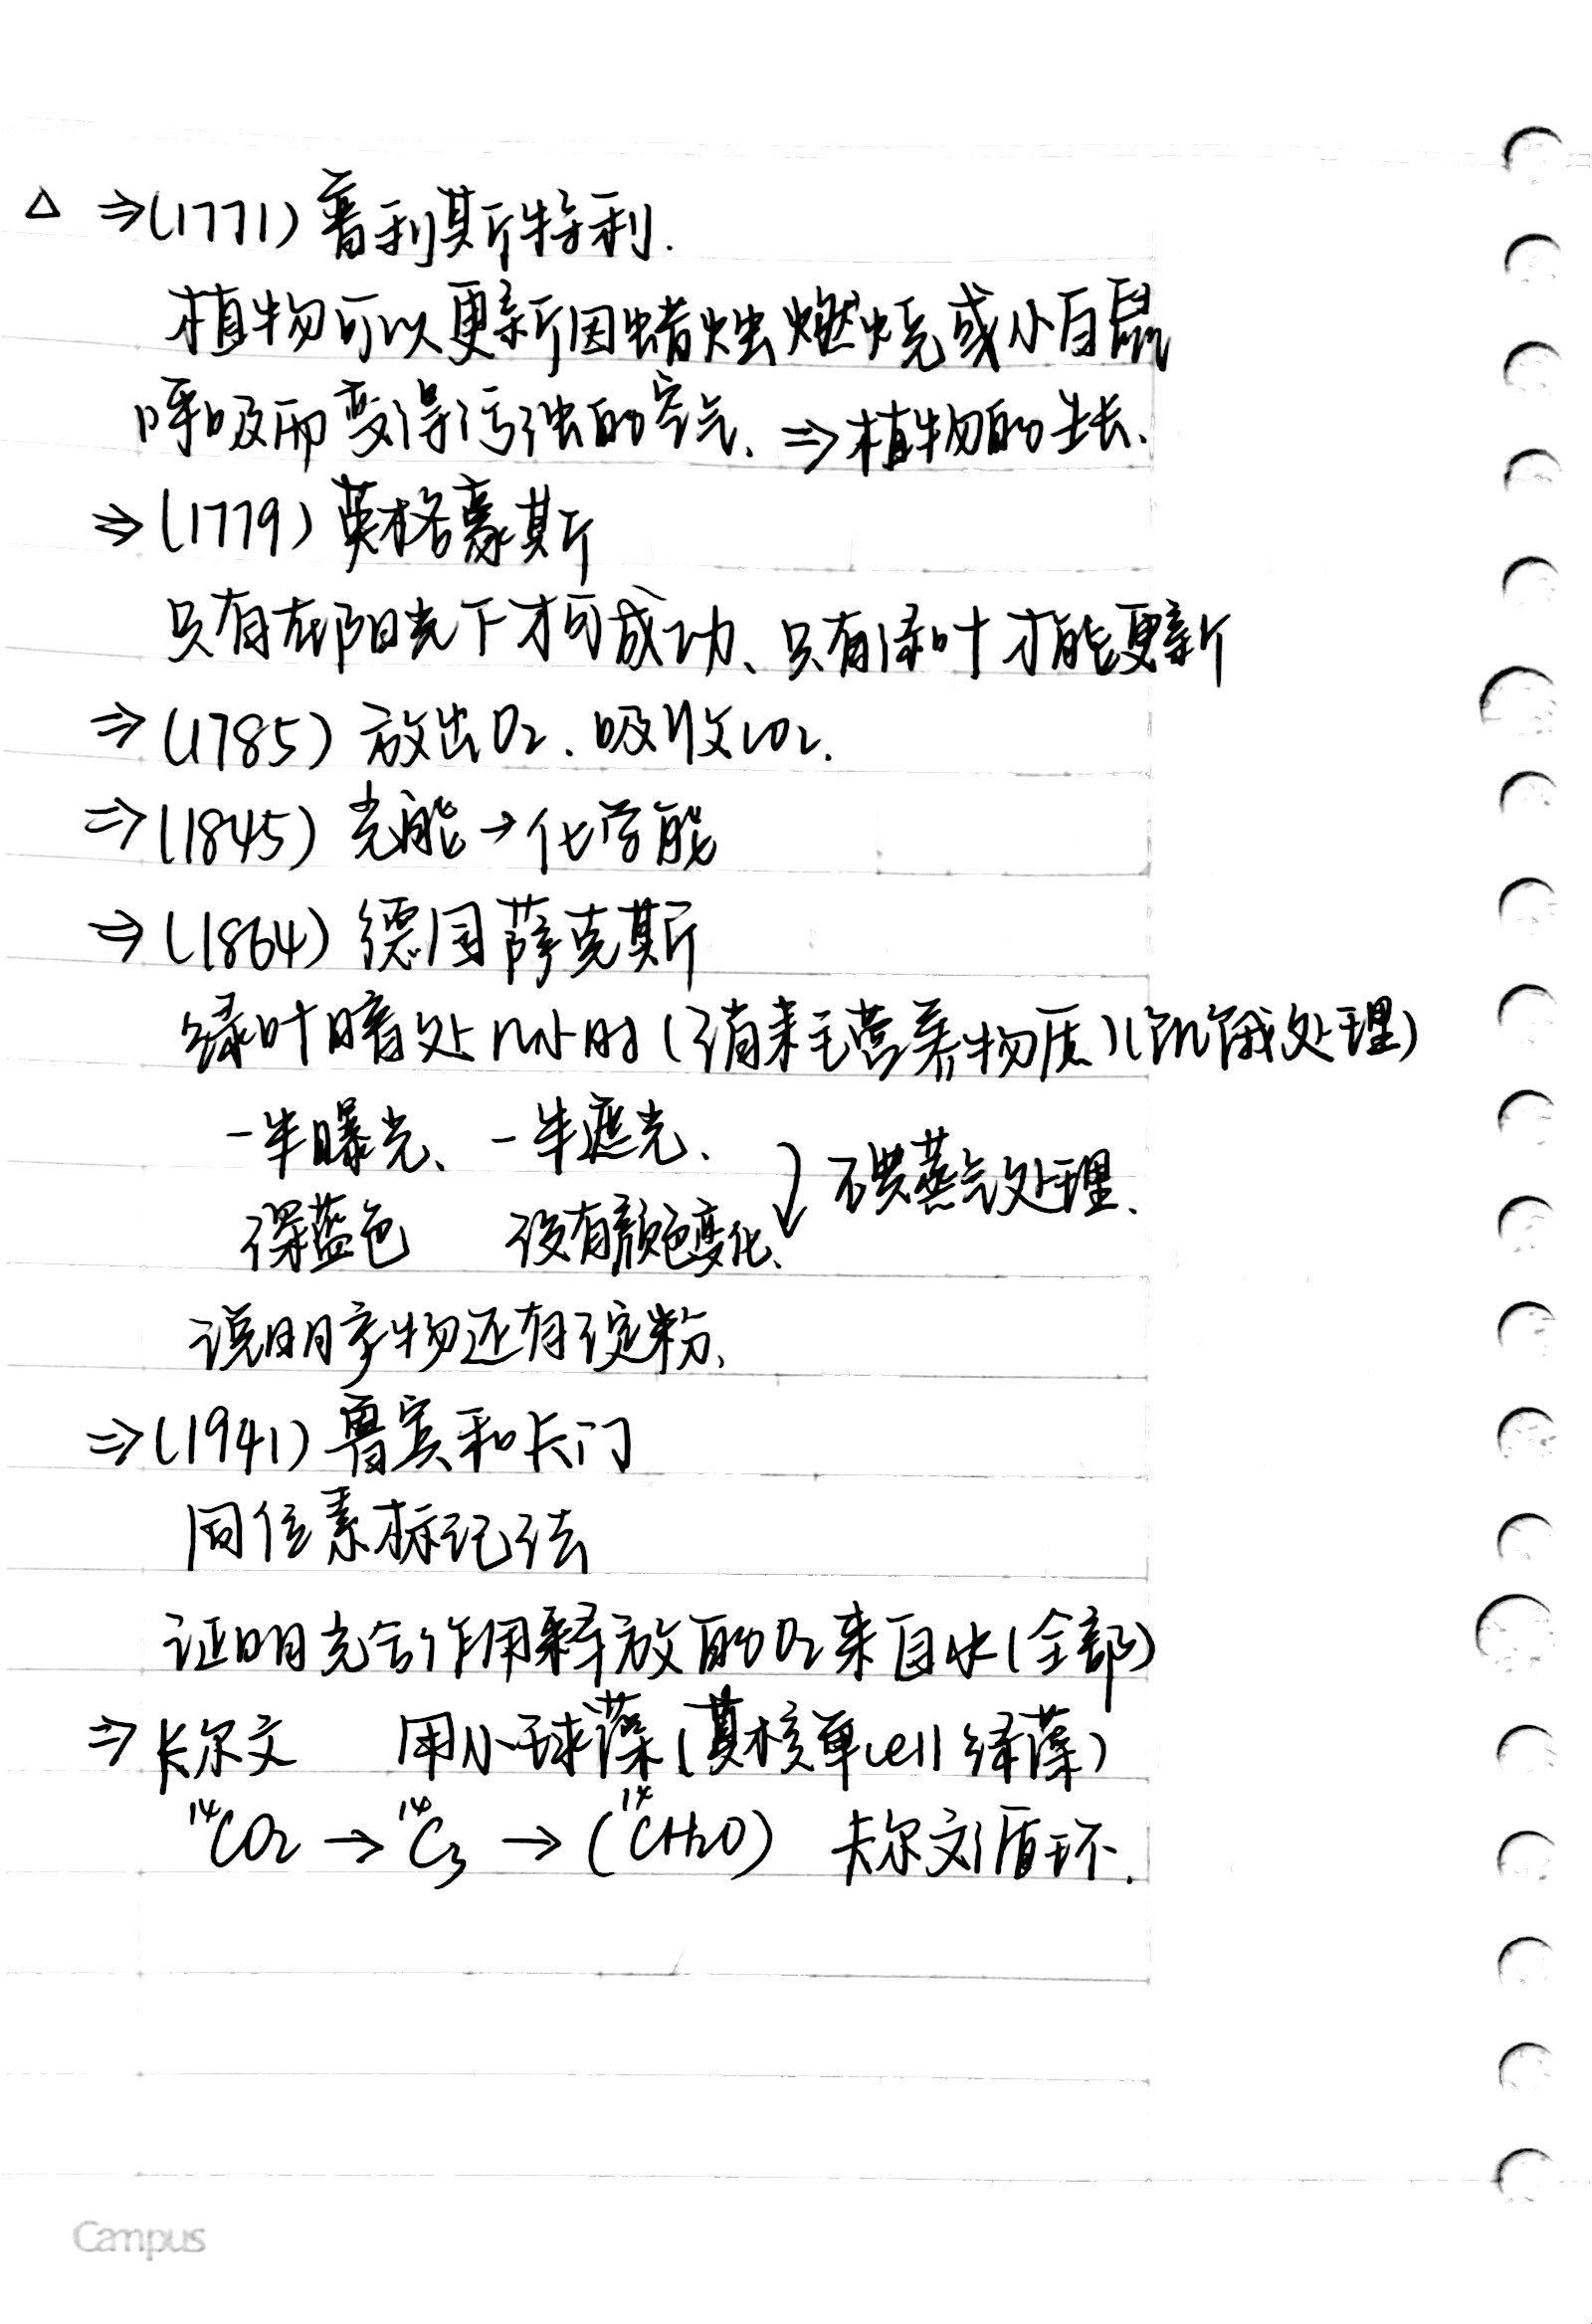 △ ⇒(1771)普利斯特利.
植物可以更新因蜡烛燃烧或小白鼠
呼吸而变得污浊的空气. ⇒植物的生长.
⇒(1779)英格豪斯
只有在阳光下才可成功、只有绿叶才能更新
⇒(1785) 放出O₂. 吸收CO₂.
⇒(1845) 光能→化学能
⇒(1864) 德国萨克斯
绿叶暗处n小时(消耗营养物质)(饥饿处理)
一半曝光、一半遮光、
深蓝色 没有颜色变化、 ⤵ 碘蒸气处理.
说明产物还有淀粉、
⇒(1941)鲁宾和卡门
同位素标记法
证明光合作用释放的O₂来自水(全部)
⇒卡尔文 用小球藻(真核单cell绿藻)
¹⁴CO₂ → ¹⁴C₃ → (¹⁴CH₂O) 卡尔文循环.
Campus